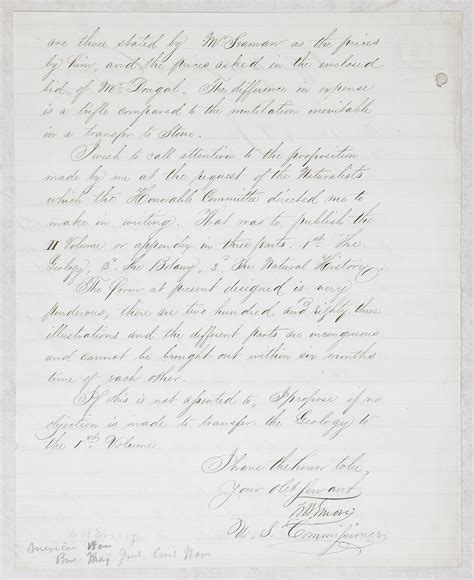 are those stated by Mr Seaman as the prices
by him, and the prices asked in the enclosed
bid of Mr Dougal. The difference in expense
is a trifle compared to the mutilation inevitable
in a transfer to Stone.
I wish to call attention to the proposition
made by me at the request of the Naturalists
which the Honorable Committee directed me to
make in writing. That was to publish the
II Volume or appendix in three parts. 1st. The
Geology, 2d. The Botany, 3d The Natural History.
The form at present designed is very
ponderous, there are two hundred and eighty three
illustrations and the different parts are incongruous
and cannot be brought out within six months
time of each other.
If this is not assented to, I propose if no
objection is made to transfer the Geology to
the 1st Volume.
I have the honor to be,
Your obt servant
W H Emory
U. S. Commissioner
W H Emory
Mexican War
Civil War